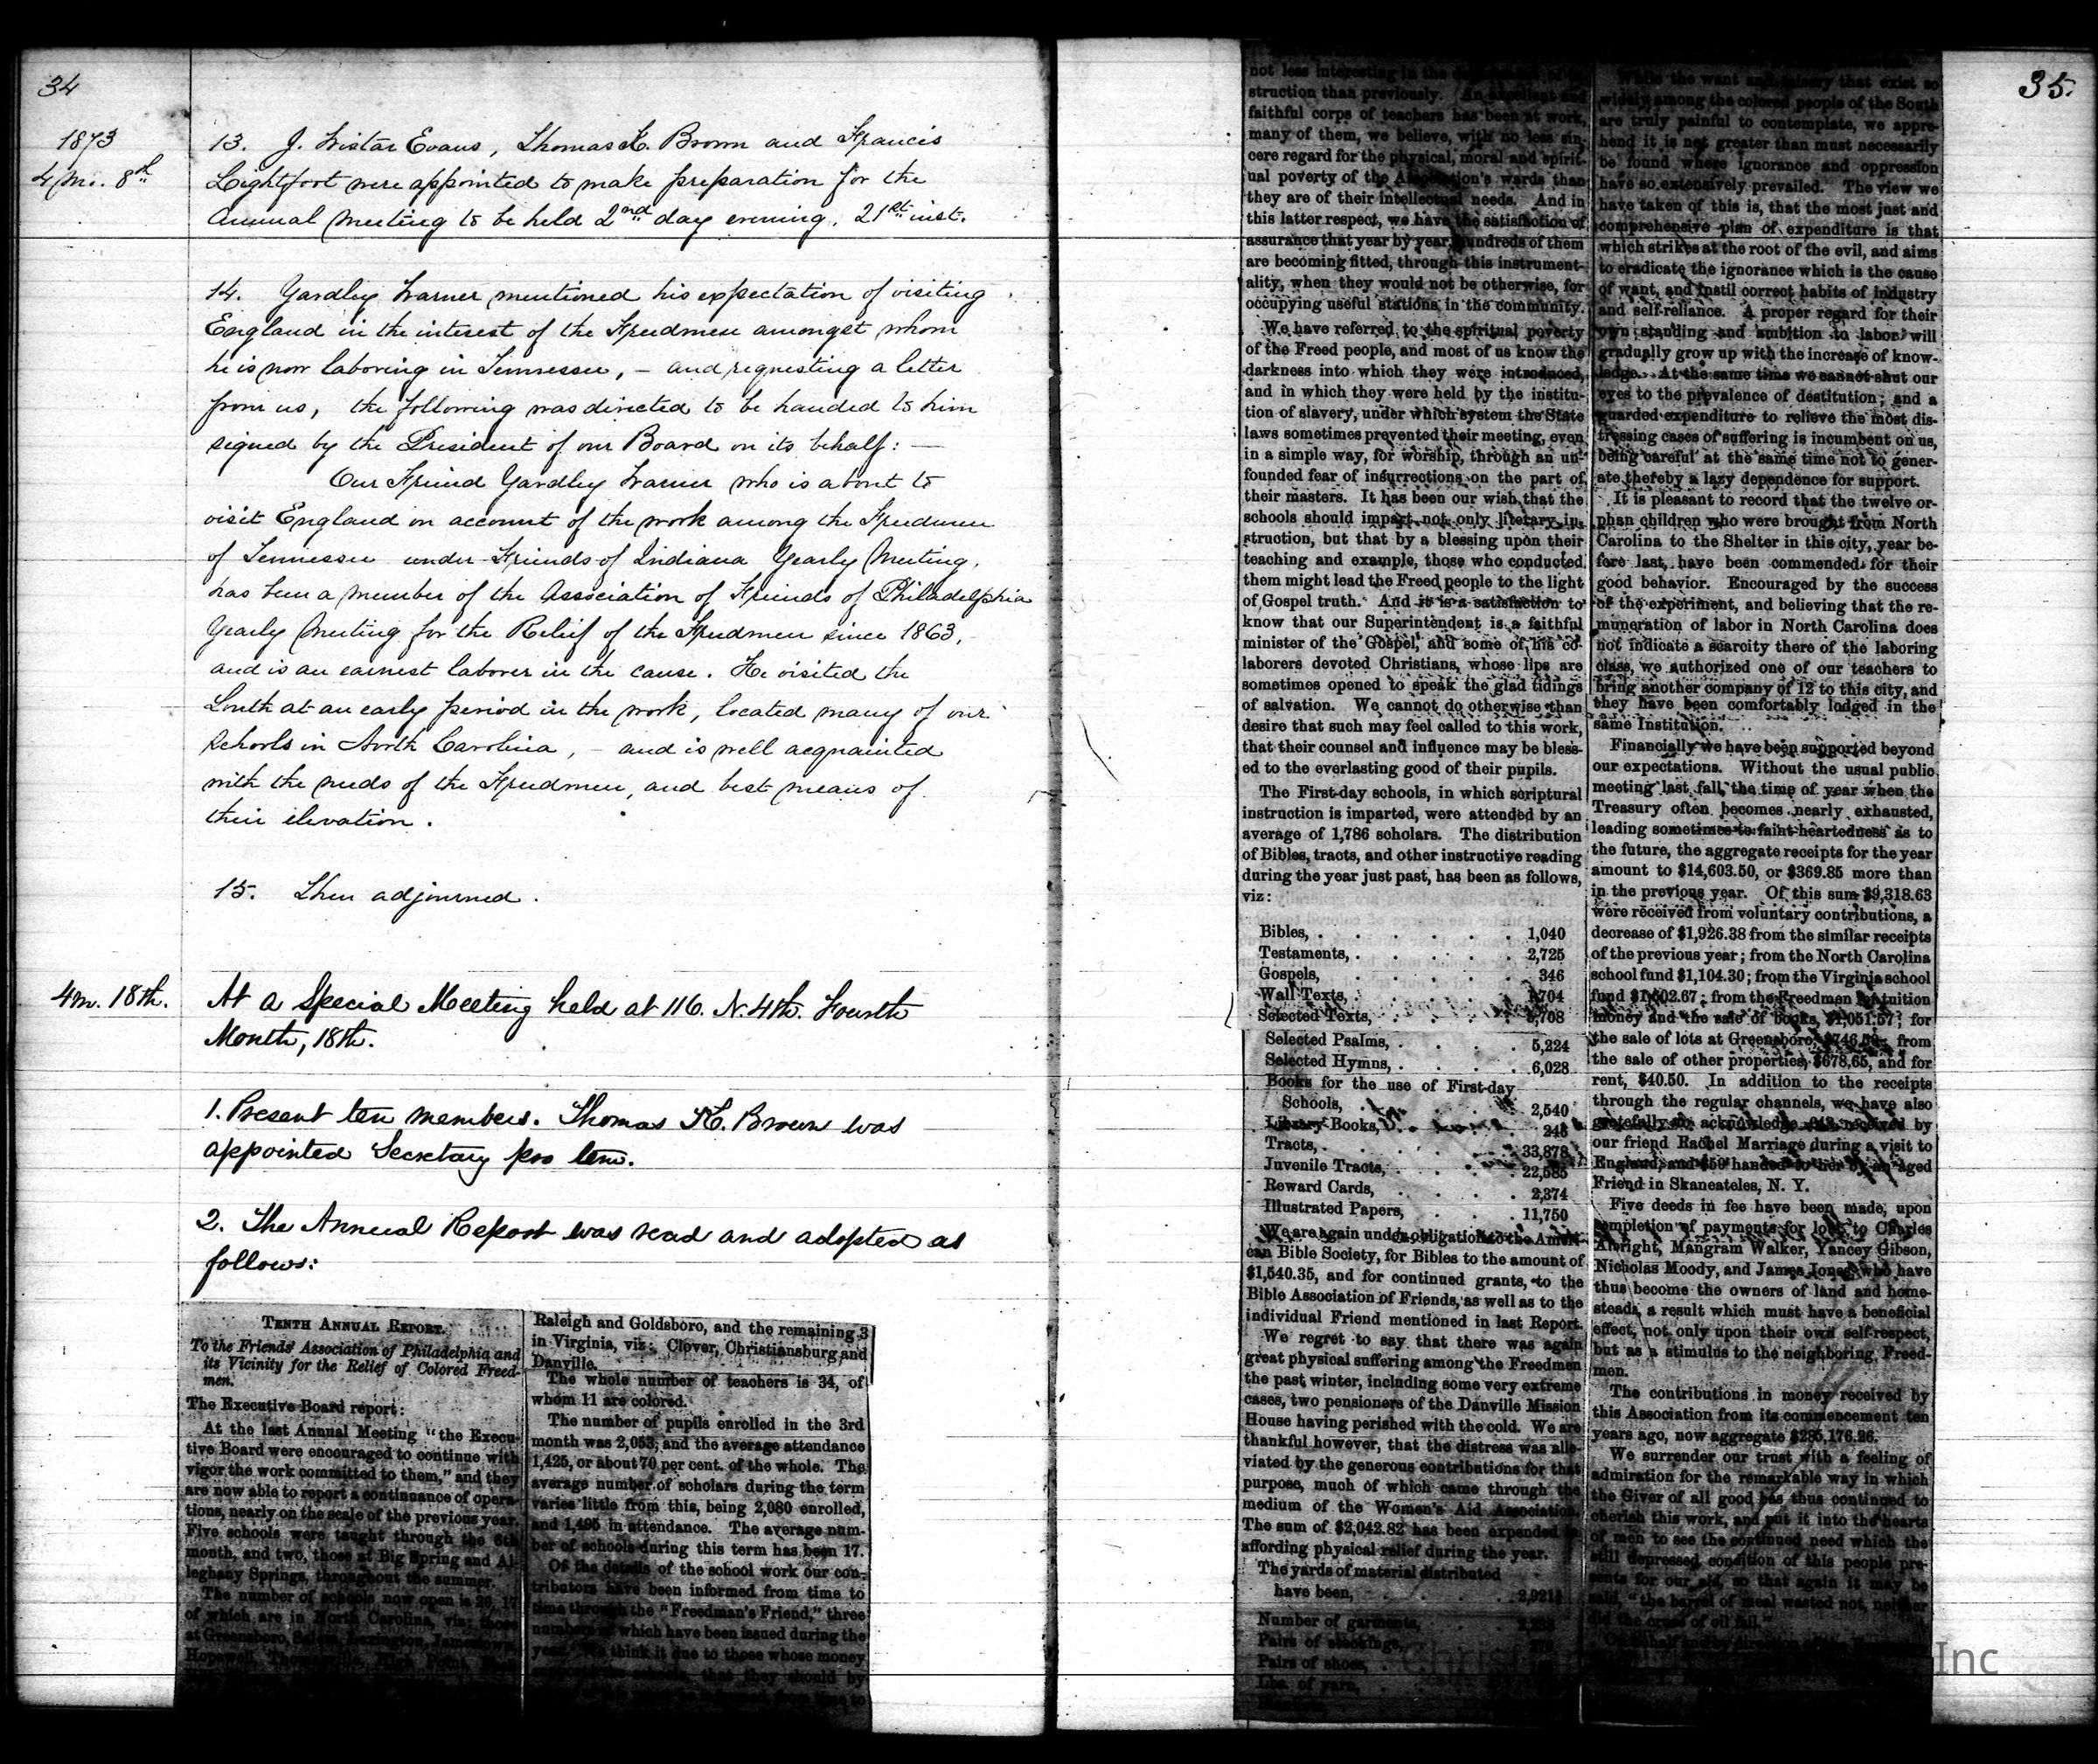 34
1873
4 Mo. 8th
13. J. Wistar Evans, Thomas K. Brown and Francis
Lightfoot were appointed to make preparation for the
Annual Meeting to be held 2nd day evening, 21st inst.
14. Yardley Warner mentioned his expectation of visiting
England in the interest of the Freedmen amongst whom
he is now laboring in Tennessee, – and requesting a letter
from us, the following was directed to be handed to him
signed by the President of our Board on its behalf: —
Our Friend Yardley Warner who is about to
visit England on account of the work among the Freedmen
of Tennessee under Friends of Indiana Yearly Meeting,
has been a member of the Association of Friends of Philadelphia
Yearly Meeting for the Relief of the Freedmen since 1863,
and is an earnest laborer in the cause. He visited the
South at an early period in the work, located many of our
schools in North Carolina, – and is well acquainted
with the needs of the Freedmen, and best means of
their elevation.
15. Then adjourned.
4m. 18th.
At a Special Meeting held at 116. N. 4th. Fourth
Month, 18th.
1. Present ten members. Thomas K. Brown was
appointed Secretary pro tem.
2. The Annual Report was read and adopted as
follows:
TENTH ANNUAL REPORT.
To the Friends' Association of Philadelphia and
its Vicinity for the Relief of Colored Freed-
men.
The Executive Board report:
At the last Annual Meeting "the Execu-
tive Board were encouraged to continue with
vigor the work committed to them," and they
are now able to report a continuance of opera-
tions, nearly on the scale of the previous year.
Five schools were taught through the 6th
month, and two, those at Big Spring and Al-
leghany Springs, throughout the summer.
The number of schools now open is 20, 17
of which are in North Carolina, viz: those
at Greensboro, Salem, Lexington, Jamestown,
Hopewell, Thomasville, High Point,
Raleigh and Goldsboro, and the remaining 3
in Virginia, viz: Clover, Christiansburg and
Danville.
The whole number of teachers is 34, of
whom 11 are colored.
The number of pupils enrolled in the 3rd
month was 2,053, and the average attendance
1,425, or about 70 per cent. of the whole. The
average number of scholars during the term
varies little from this, being 2,080 enrolled,
and 1,495 in attendance. The average num-
ber of schools during this term has been 17.
Of the details of the school work our con-
tributors have been informed from time to
time through the "Freedman's Friend," three
numbers of which have been issued during the
year. We think it due to those whose money
that they should by
35.
not less interesting in the of in-
struction than previously. An excellent and
faithful corps of teachers has been at work,
many of them, we believe, with no less sin-
cere regard for the physical, moral and spirit-
ual poverty of the Association's wards than
they are of their intellectual needs. And in
this latter respect, we have the satisfaction of
assurance that year by year, hundreds of them
are becoming fitted, through this instrument-
ality, when they would not be otherwise, for
occupying useful stations in the community.
We have referred to the spiritual poverty
of the Freed people, and most of us know the
darkness into which they were introduced,
and in which they were held by the institu-
tion of slavery, under which system the State
laws sometimes prevented their meeting, even
in a simple way, for worship, through an un-
founded fear of insurrections on the part of
their masters. It has been our wish that the
schools should impart not only literary in-
struction, but that by a blessing upon their
teaching and example, those who conducted
them might lead the Freed people to the light
of Gospel truth. And it is a satisfaction to
know that our Superintendent is a faithful
minister of the Gospel, and some of his co-
laborers devoted Christians, whose lips are
sometimes opened to speak the glad tidings
of salvation. We cannot do otherwise than
desire that such may feel called to this work,
that their counsel and influence may be bless-
ed to the everlasting good of their pupils.
The First-day schools, in which scriptural
instruction is imparted, were attended by an
average of 1,786 scholars. The distribution
of Bibles, tracts, and other instructive reading
during the year just past, has been as follows,
viz:
Bibles, . . . . . . 1,040
Testaments, . . . . . 2,725
Gospels, . . . . . 346
Wall Texts, . . . . . 1,704
Selected Texts, . . . . 5,708
Selected Psalms, . . . . 5,224
Selected Hymns, . . . . 6,028
Books for the use of First-day
Schools, . . . . . 2,540
Library Books, . . . . 248
Tracts, . . . . . 33,878
Juvenile Tracts, . . . . 22,585
Reward Cards, . . . . 2,374
Illustrated Papers, . . . . 11,750
We are again under obligation to the Ameri-
can Bible Society, for Bibles to the amount of
$1,540.35, and for continued grants, to the
Bible Association of Friends, as well as to the
individual Friend mentioned in last Report.
We regret to say that there was again
great physical suffering among the Freedmen
the past winter, including some very extreme
cases, two pensioners of the Danville Mission
House having perished with the cold. We are
thankful however, that the distress was alle-
viated by the generous contributions for that
purpose, much of which came through the
medium of the Women's Aid Association.
The sum of $2,042.82 has been expended in
affording physical relief during the year.
The yards of material distributed
have been,
Number of garments,
Pairs of stockings,
Pairs of shoes,
Lbs. of yarn,
While the want and misery that exist so
widely among the colored people of the South
are truly painful to contemplate, we appre-
hend it is not greater than must necessarily
be found where ignorance and oppression
have so extensively prevailed. The view we
have taken of this is, that the most just and
comprehensive plan of expenditure is that
which strikes at the root of the evil, and aims
to eradicate the ignorance which is the cause
of want, and instil correct habits of industry
and self-reliance. A proper regard for their
own standing and ambition to labor will
gradually grow up with the increase of know-
ledge. At the same time we cannot shut our
eyes to the prevalence of destitution; and a
guarded expenditure to relieve the most dis-
tressing cases of suffering is incumbent on us,
being careful at the same time not to gener-
ate thereby a lazy dependence for support.
It is pleasant to record that the twelve or-
phan children who were brought from North
Carolina to the Shelter in this city, year be-
fore last, have been commended for their
good behavior. Encouraged by the success
of the experiment, and believing that the re-
muneration of labor in North Carolina does
not indicate a scarcity there of the laboring
class, we authorized one of our teachers to
bring another company of 12 to this city, and
they have been comfortably lodged in the
same Institution.
Financially we have been supported beyond
our expectations. Without the usual public
meeting last fall, the time of year when the
Treasury often becomes nearly exhausted,
leading sometimes to faint-heartedness as to
the future, the aggregate receipts for the year
amount to $14,603.50, or $369.85 more than
in the previous year. Of this sum $9,318.63
were received from voluntary contributions, a
decrease of $1,926.38 from the similar receipts
of the previous year; from the North Carolina
school fund $1,104.30; from the Virginia school
fund $1,602.67; from the Freedmen for tuition
money and the sale of books, $1,051.57; for
the sale of lots at Greensboro, from
the sale of other properties, $678.65, and for
rent, $40.50. In addition to the receipts
through the regular channels, we have also
gratefully to acknowledge received by
our friend Rachel Marriage during a visit to
England, and $50 handed to her by an aged
Friend in Skaneateles, N. Y.
Five deeds in fee have been made, upon
completion of payments for lots, to Charles
Albright, Mangram Walker, Yancey Gibson,
Nicholas Moody, and James Jones, who have
thus become the owners of land and home-
steads, a result which must have a beneficial
effect, not only upon their own self-respect,
but as a stimulus to the neighboring Freed-
men.
The contributions in money received by
this Association from its commencement ten
years ago, now aggregate $285,176.26.
We surrender our trust with a feeling of
admiration for the remarkable way in which
the Giver of all good has thus continued to
cherish this work, and put it into the hearts
of men to see the continued need which the
still depressed condition of this people pre-
sents for our aid, so that again it may be
said, "the barrel of meal wasted not, neither
did the cruse of oil fail."
On behalf and by direction of the
Inc